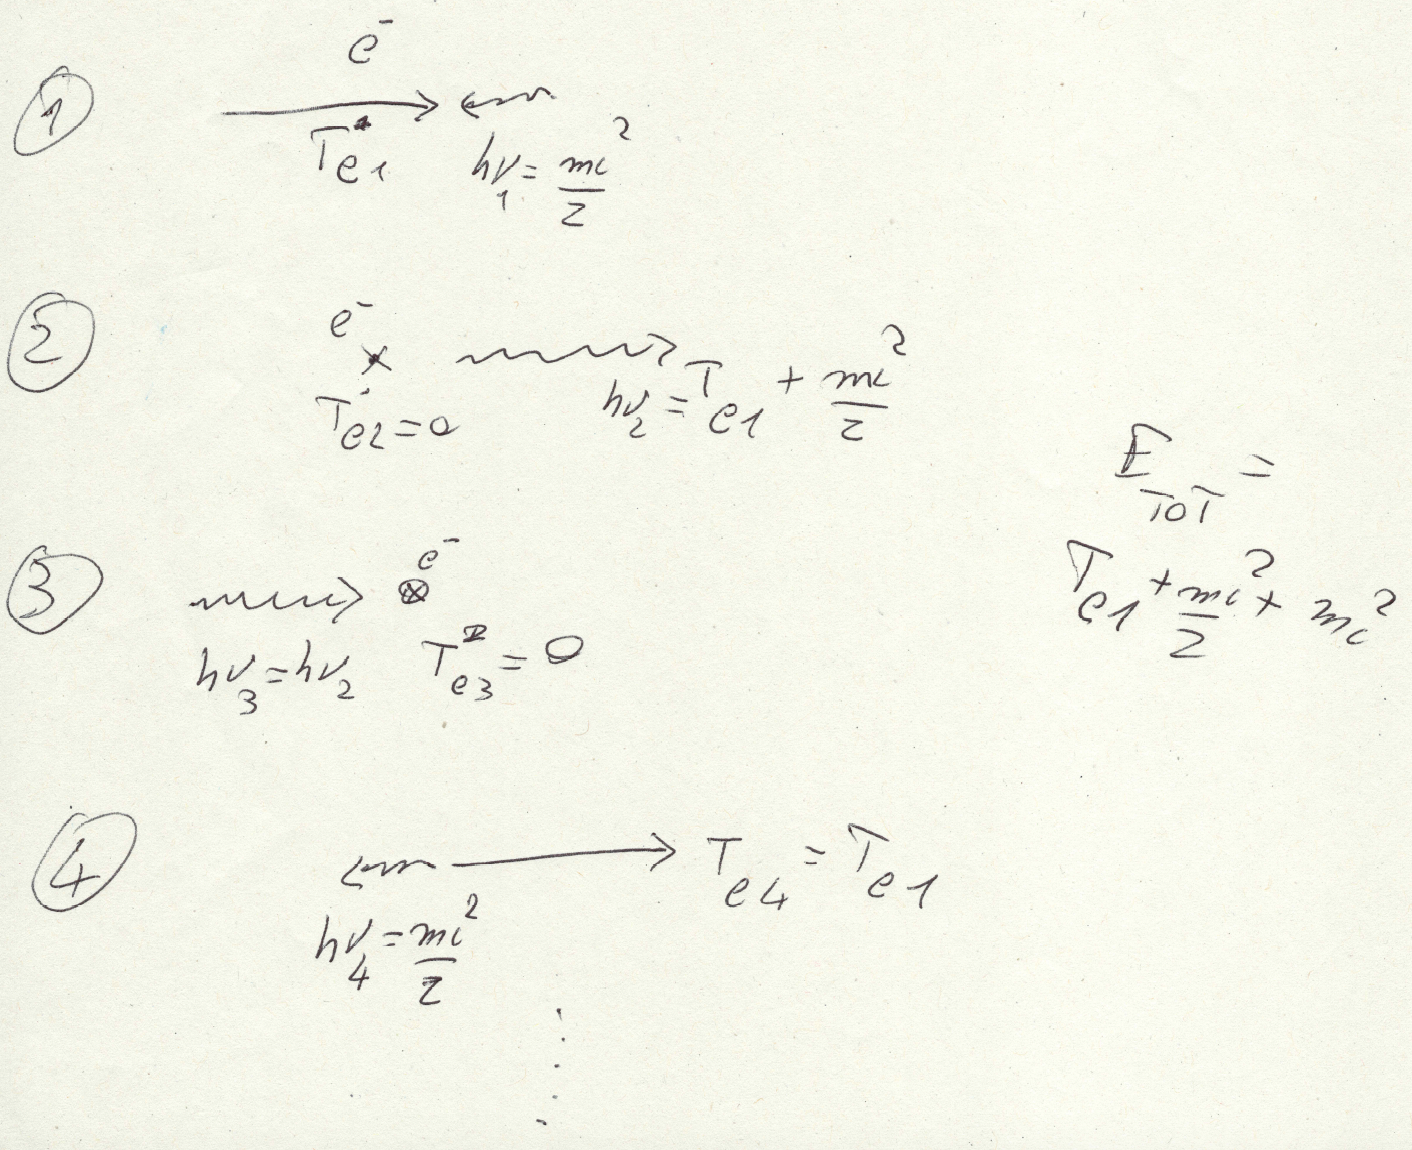 ① e⁻
Tₑ₁ hν₁ = mc²/2
② e⁻
Tₑ₂ = 0 hν₂ = Tₑ₁ + mc²/2
E_TOT =
Tₑ₁ + mc²/2 + mc²
③ e⁻
hν₃ = hν₂ Tₑ₃ = 0
④ Tₑ₄ = Tₑ₁
hν₄ = mc²/2